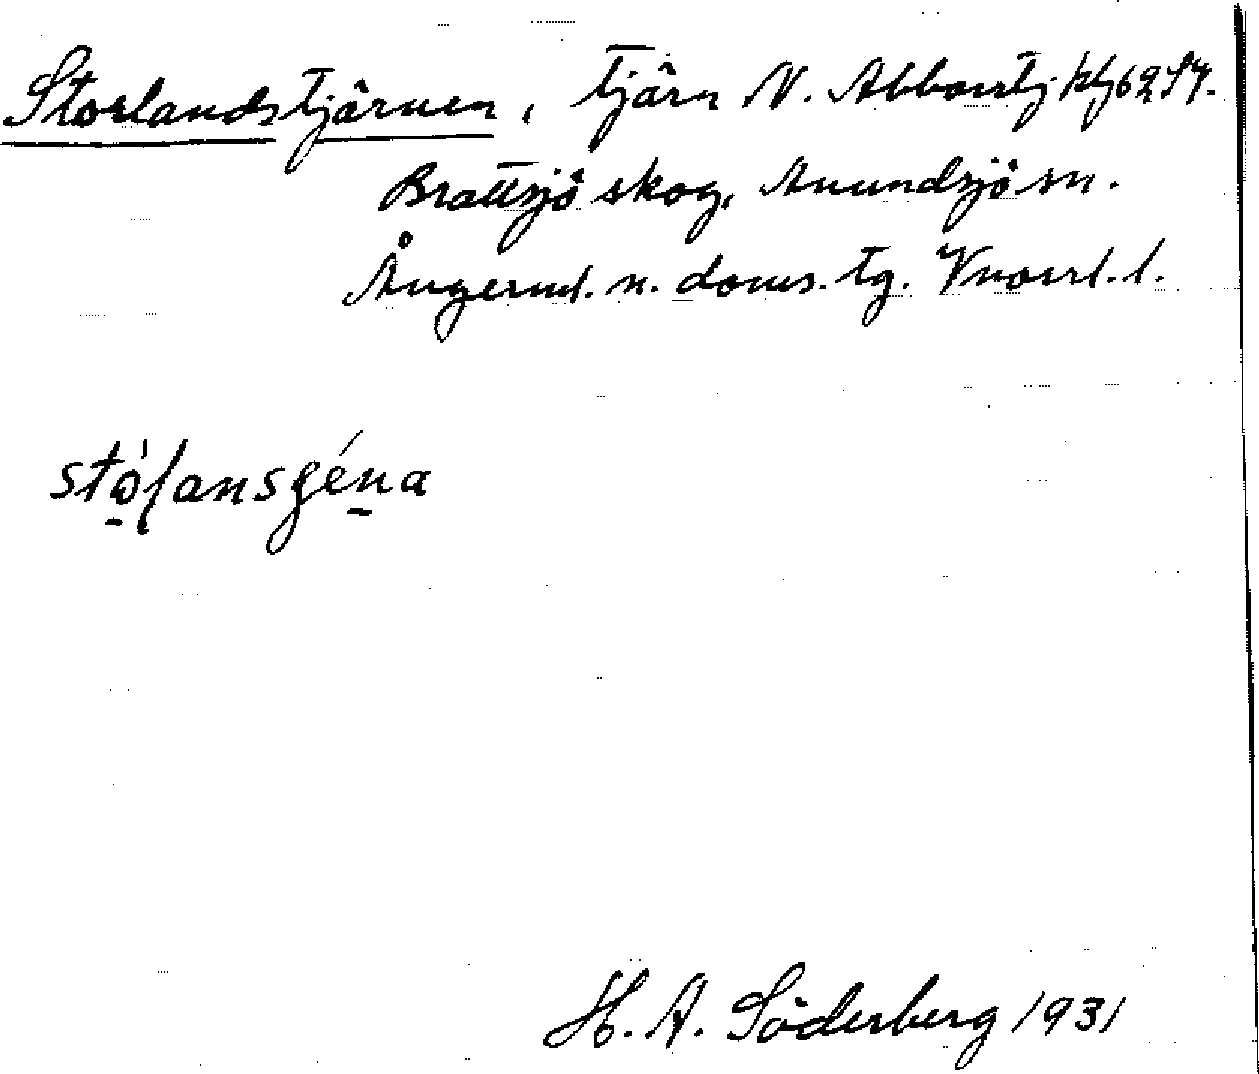 Storlandstjärnen, tjärn N. Abborrtj
Brattsjö skog, Anundsjö sn.
Ångerml. n. doms. tg. Vnorrl. l.
H. A. Söderberg 1931